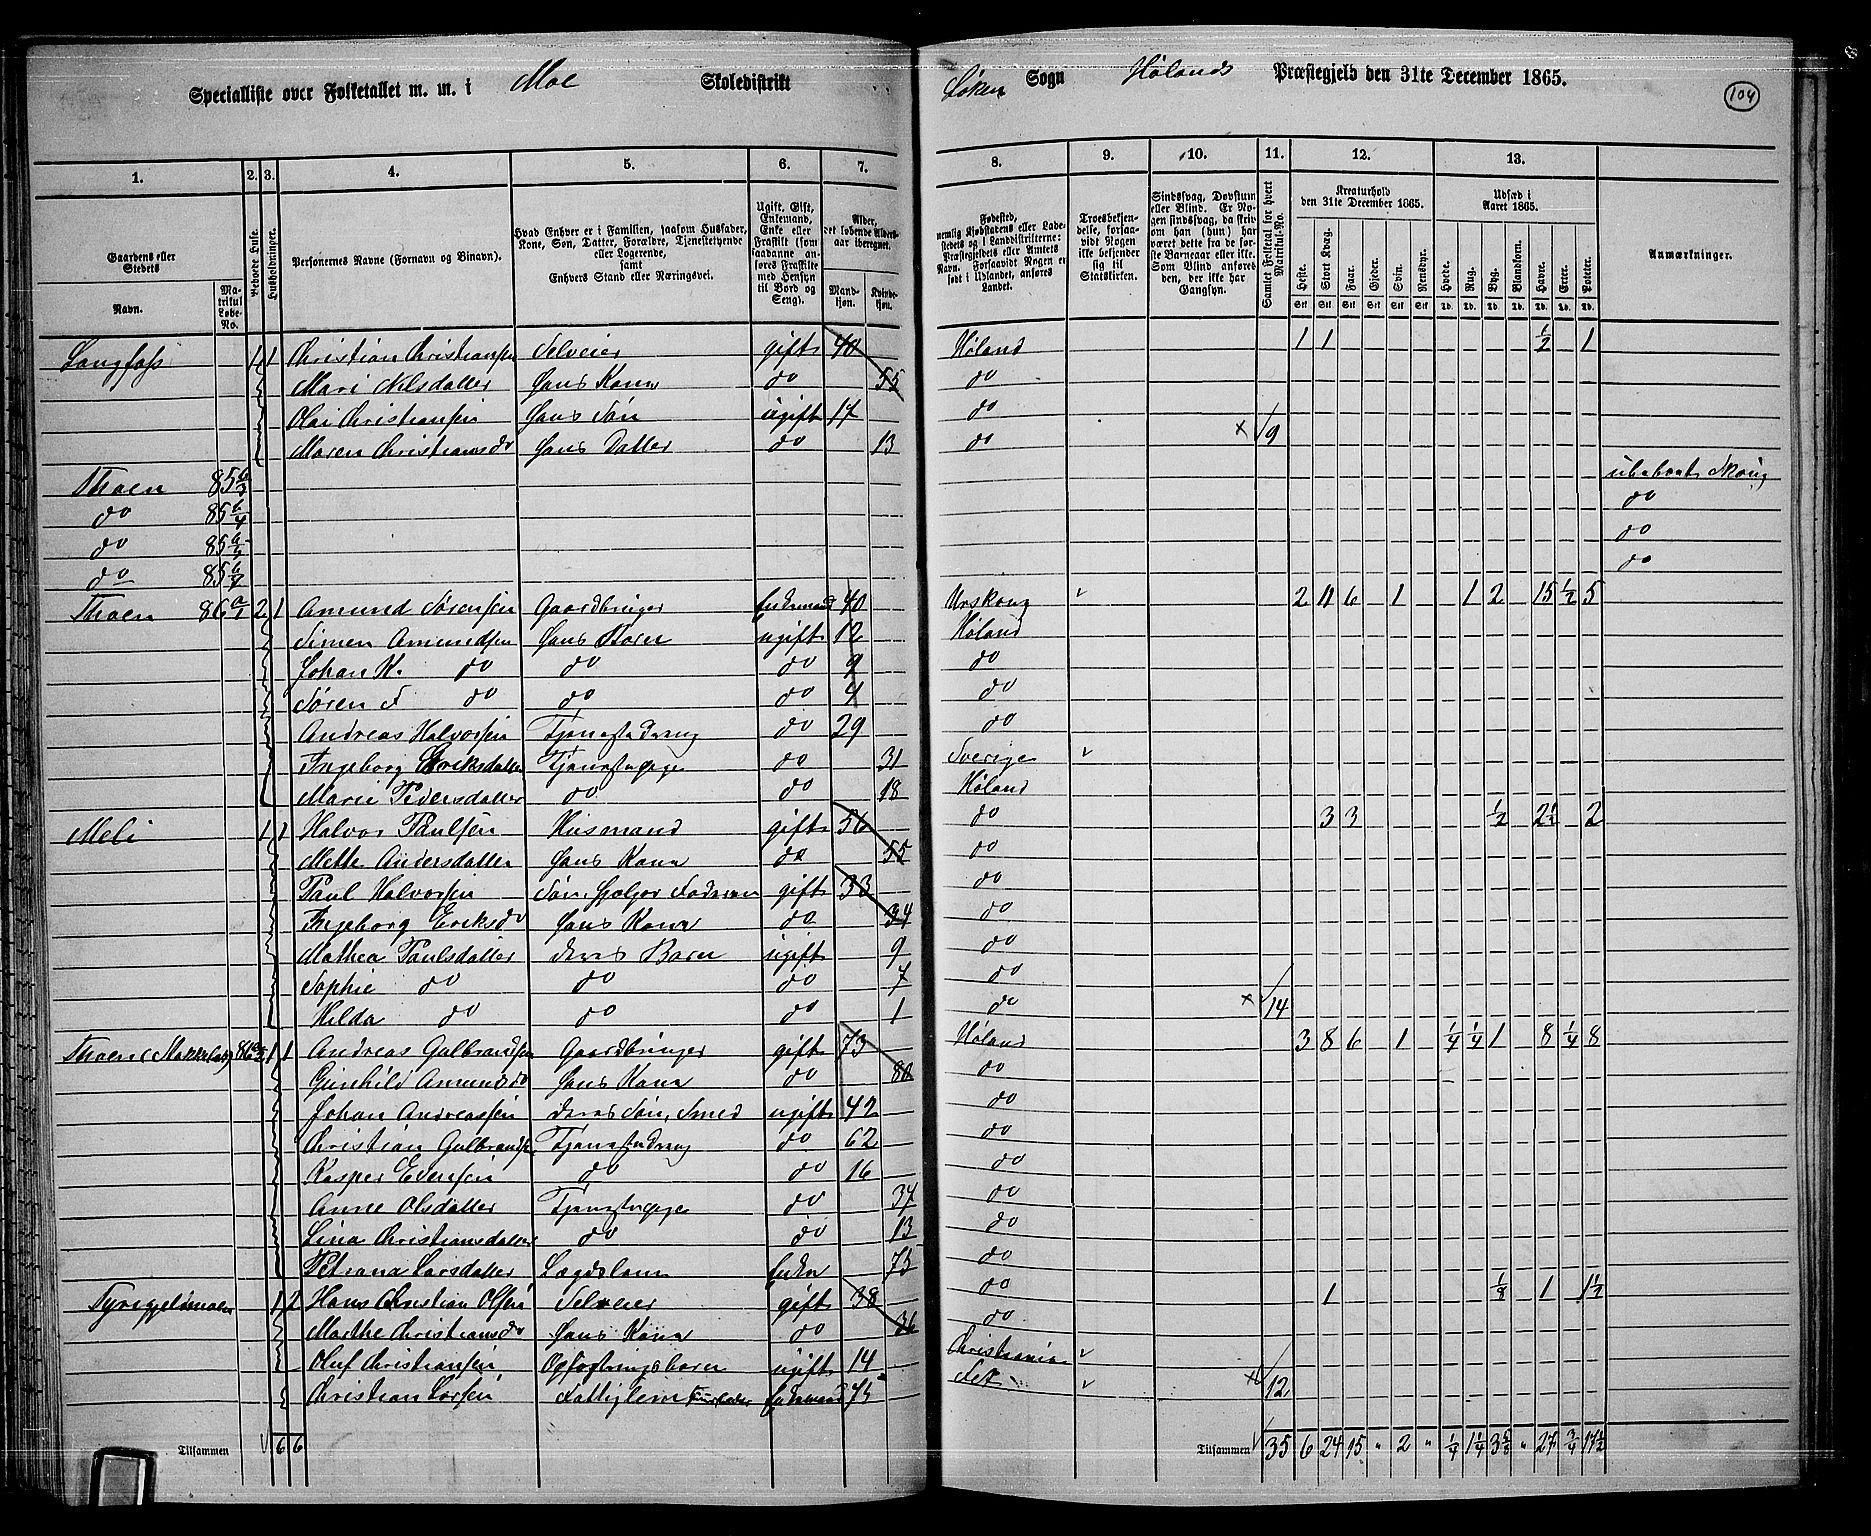 Specialliste over Folketallet m. m. i Moe Skoledistrikt Løken Sogn Hølands Præstegjeld den 31te December 1865.
104
1. 2. 3. 4. 5. 6. 7. 8. 9. 10. 11. 12. 13.
Gaardens eller Stedets
Navn. Matrikul Løbe-No.
Beboede Huse.
Husholdninger.
Personernes Navne (Fornavn og Binavn).
Hvad Enhver er i Familien, saasom Husfader, Kone, Søn, Datter, Forældre, Tjenestetyende eller Logerende, samt Enhvers Stand eller Næringsvei.
Ugift, Gift, Enkemand, Enke eller Fraskilt (som saadanne anføres Fraskilte med Hensyn til Bord og Seng).
Alder, det løbende Aldersaar iberegnet.
Mandkjøn. Kvindekjøn.
Fødested, nemlig Kjøbstadens eller Ladestedets og i Landdistrikterne: Præstegjeldets eller Amtets Navn. Forsaavidt Nogen er født i Udlandet, anføres Landet.
Troesbekjendelse, forsaavidt Nogen ikke bekjender sig til Statskirken.
Sindssvag, Døvstum eller Blind. Er Nogen sindssvag, da skriv om han (hun) har været dette fra de første Barneaar eller ikke. Som Blind anføres den, der ikke har Gangsyn.
Samlet Folketal for hvert Matrikul-No.
Kreaturhold den 31te December 1865.
Heste. Stort Kvæg. Faar. Gjeder. Svin. Rensdyr.
Udsæd i Aaret 1865.
Hvede. Rug. Byg. Blandkorn. Havre. Erter. Poteter.
Anmærkninger.
Langfoss 1 1 Christian Christiansen Selveier gift 40 Høland 1 1 1/2 1
Mari Nilsdatter Hans Kone do 55 do
Olai Christiansen Hans Søn ugift 17 do
Maren Christiansdr Hans Datter do 13 do × 9
Thoen 85 6/3 ubeboet Skoug
do 85 6/4 do
do 85 do
do 85 do
Thoen 86 a/1 2 1 Amund Sørensen Gaardbruger Enkemand 40 Urskoug 2 11 6 1 1 2 15 1/2 5
Simen Amundsen Hans Børn ugift 12 Høland
Johan H. do do do 9 do
Søren do do do 4 do
Andreas Halvorsen Tjenestedreng do 29 do
Ingeborg Eriksdatter Tjenestepige do 31 Sverige
Marie Pedersdatter do do 18 Høland
Meli 1 1 Halvor Paulsen Husmand gift 56 do 3 3 1/2 2 1/2 2
Mette Andersdatter Hans Kone do 55 do
Paul Halvorsen Søn, hjelper Faderen gift 33 do
Ingeborg Eriksdr Hans Kone do 34 do
Mathea Paulsdatter deres Børn ugift 9 do
Sophie do do do 7 do
Hilda do do do 1 do × 14
Thoen (Makkelab) 86 1 1 Andreas Gulbrandsen Gaardbruger gift 73 Høland 3 8 6 1 1/4 1/4 1 8 1/4 8
Gunhild Amundsdr Hans Kone do 80 do
Johan Andreassen deres Søn, Smed ugift 42 do
Christian Gulbrandsen Tjenestedreng do 62 do
Kasper Evensen do do 16 do
Anne Olsdatter Tjenestepige do 37 do
Lina Christiansdatter do do 13 do
Petrana Larsdatter Lægdslem Enke 73 do
Tyrigjelsmoen 1 2 Hans Christian Olsen Selveier gift 38 do 1 1/8 1 1 1/2
Marthe Christiansdr Hans Kone do 36 do
Oluf Christiansen Opfostringsbørn ugift 14 Christiania
Christian Larsen Fattiglem Enkemand 75 Fet × 12
Tilsammen 6 6 Tilsammen 35 6 24 15 " 2 " 1/4 1 1/4 3 5/8 " 27 3/4 17 1/2